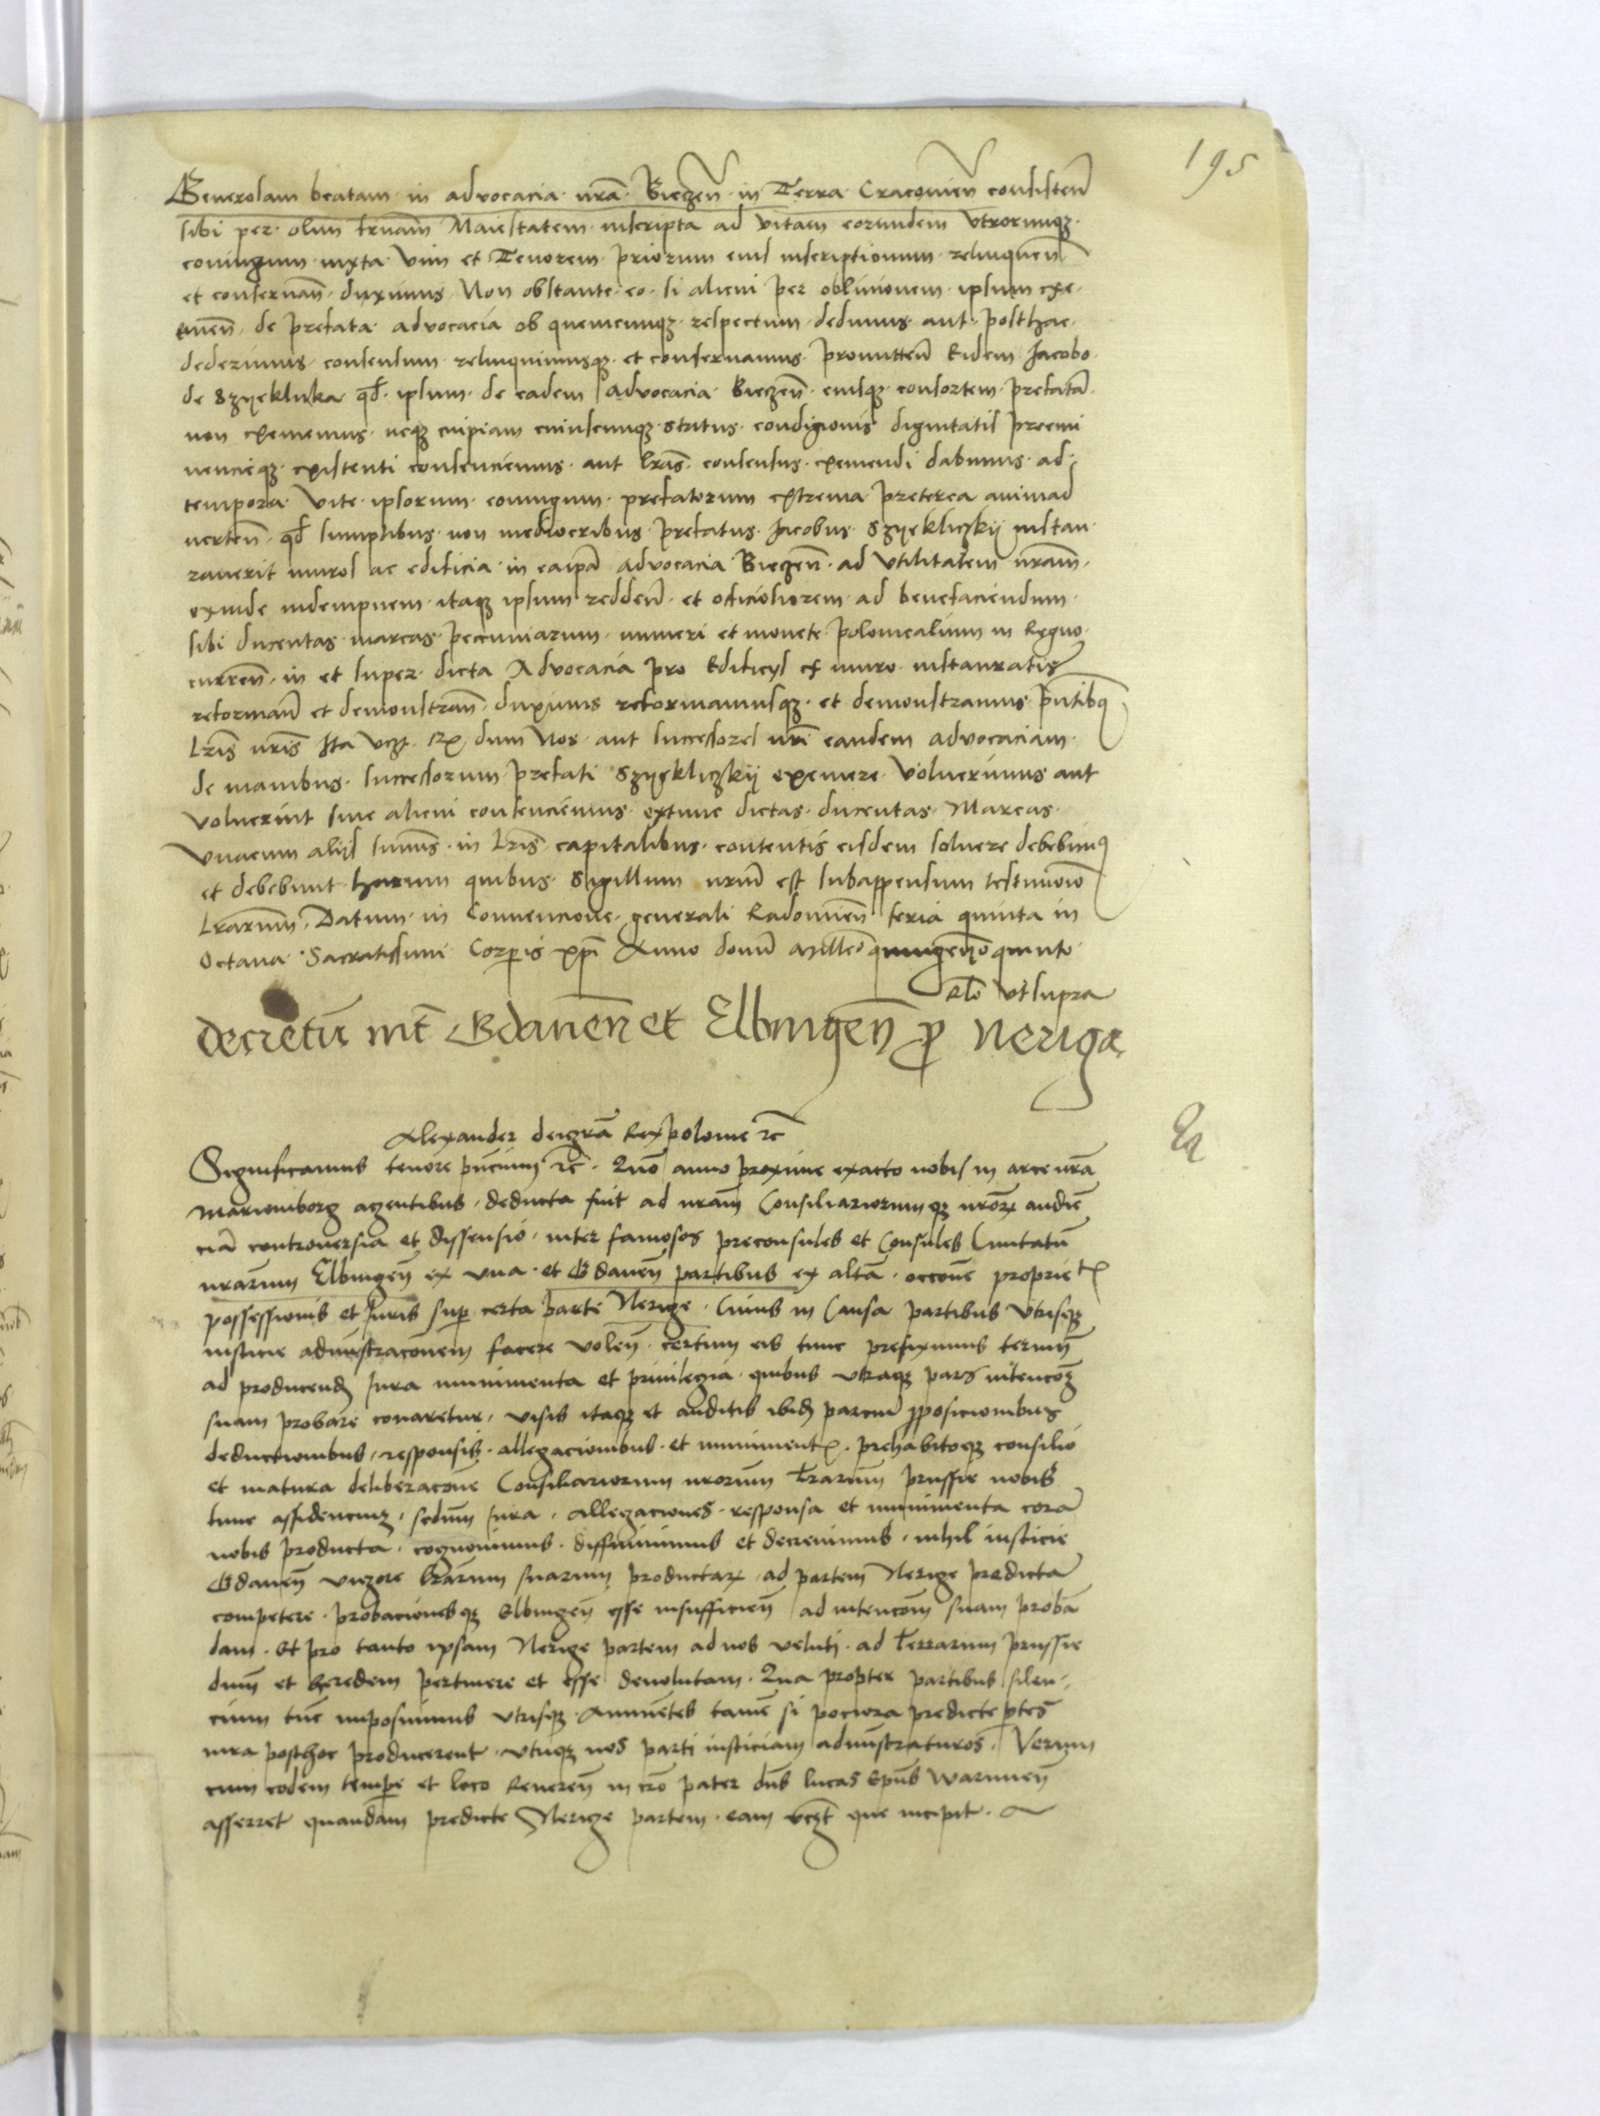 195
Generosam beatam in advocacia nrã Bieczeñ in Terra Cracovieñ consisteñ
sibi per olim seruam Maiestatem inscripta ad vitam eorundem vtrorumqȝ
coniugum iuxta vim et Tenorem priorum eius inscriptionum relinqueñ
et conseruañ duximus Non obstante eo si alicui per obliuionem ipsum exe
meñ de prefata advocacia ob quemcunqȝ respectum dedimus aut posthac
dederimus consensum relinquimusqȝ et conseruamus promitteñ Eidem Jacobo
de Szyekluka qd ipsum de eadem advocacia Bieczeñ eiusqȝ consortem prefatã
non exememus neqȝ cuipiam cuiuscunqȝ status condicionis dignitatis preemi
nencieqȝ existenti consenciemus aut lrãs consensus exemendi dabimus ad
tempora vite ipsorum coniugum prefatorum extrema preterea animad
uerteñ qd sumptibus non mediocribus prefatus Jacobus Szyekliczkij instau
rauerit muros ac edificia in eaipã advocacia Bieczeñ ad vtilitatem nrãm
exinde indempnem itaqȝ ipsum reddeñ et officiosiorem ad benefaciendum
sibi ducentas marcas pecuniarum numeri et monete polonicalium in Regno
curreñ in et super dicta Advocacia pro Edificijs ex muro instauratis
reformañ et demonstrañ duximus reformamusqȝ et demonstramus pñtibq
Lrĩs nrĩs Ita vczt qz dum Nos aut successores nri eandem advocaciam
de manibus successorum prefati Szyekliczkij exemere voluerimus aut
voluerint siue alicui consenciemus extunc dictas ducentas Marcas
vnacum alijs summĩs in lrĩs capitalibus contentis eisdem soluere debebimq
et debebunt harum quibus Sigillum nrum est subappensum testimonio
Lrarum Datum in Convencione generali Radomieñ feria quinta in
Octaua Sacratissimi Corporis xpĩ Anno domĩ millẽo quingenẽo quinto
Rlo vt supra
decretũ int Gdaneñ et Elbingeñ p Neriga
Alexander dei grã Rex polonie rc
Significamus tenore pñcium rc Quõ anno proxime exacto nobis in arce nrã
Mariemborg agentibus deducta fuit ad nram Consiliariorumqȝ nrõrx audiẽ
ciã controuersia et dissensio inter famosos preconsules et Consules Ciuitatũ
nrarum Elbingeñ ex vna et Gdaneñ partibus ex altã occone propriet
possessionis et Juris sup certa parte Nerige Cuius in Causa partibus vtrisqȝ
iusticie adnistraconem facere voleñ certum eis tunc prefiximus termiñ
ad producend Jura munimenta et priuilegia quibus vtraqȝ pars intencoȝ
suam probare conaretur visis itaqȝ et auditis ibid parcium pposicionibus
deductionibus responsis allegacionibus et muniment prehabitoqȝ consilio
et matura deliberacone Consiliariorum nrorum Trarum prussie nobis
tunc assidenciuȝ sedum Jura Allegaciones responsa et munimenta corã
nobis producta cognouimus diffiniuimus et decreuimus nihil iusticie
Gdaneñ vigore lrarum suarum productarx ad partem Nerige predictã
competere probacionesqȝ Elbingeñ esse insufficieñ ad intencom suam probã
dam Et pro tanto ipsam Nerige partem ad nos veluti ad Terrarum prussie
dnm et heredem pertinere et esse deuolutam Qua propter partibus silen
cium tũc imposuimus vtrisqȝ Annuẽtes tamẽ si pociora predicte ptes
iura posthac producerent vtriqȝ nos parti iusticiam adnistraturos Verum
cum eodem tempe et loco Reuereñ in crõ pater dñs lucas Epũs Warmieñ
asserret quandam predicte Nerige partem eam vczt que incipit